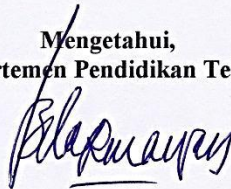 Mengetahui,
rtemen Pendidikan Te